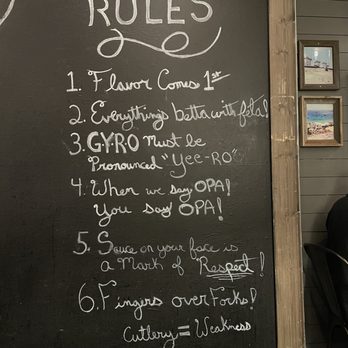 RULES
1. Flavor Comes 1st
2. Everythings betta with feta!
3. GYRO Must be
Pronounced "Yee-RO"
4. When we say OPA!
You say OPA!
5. Sauce on your face is
a Mark of "Respect"!
6. Fingers over Forks!
Cutlery = Weakness